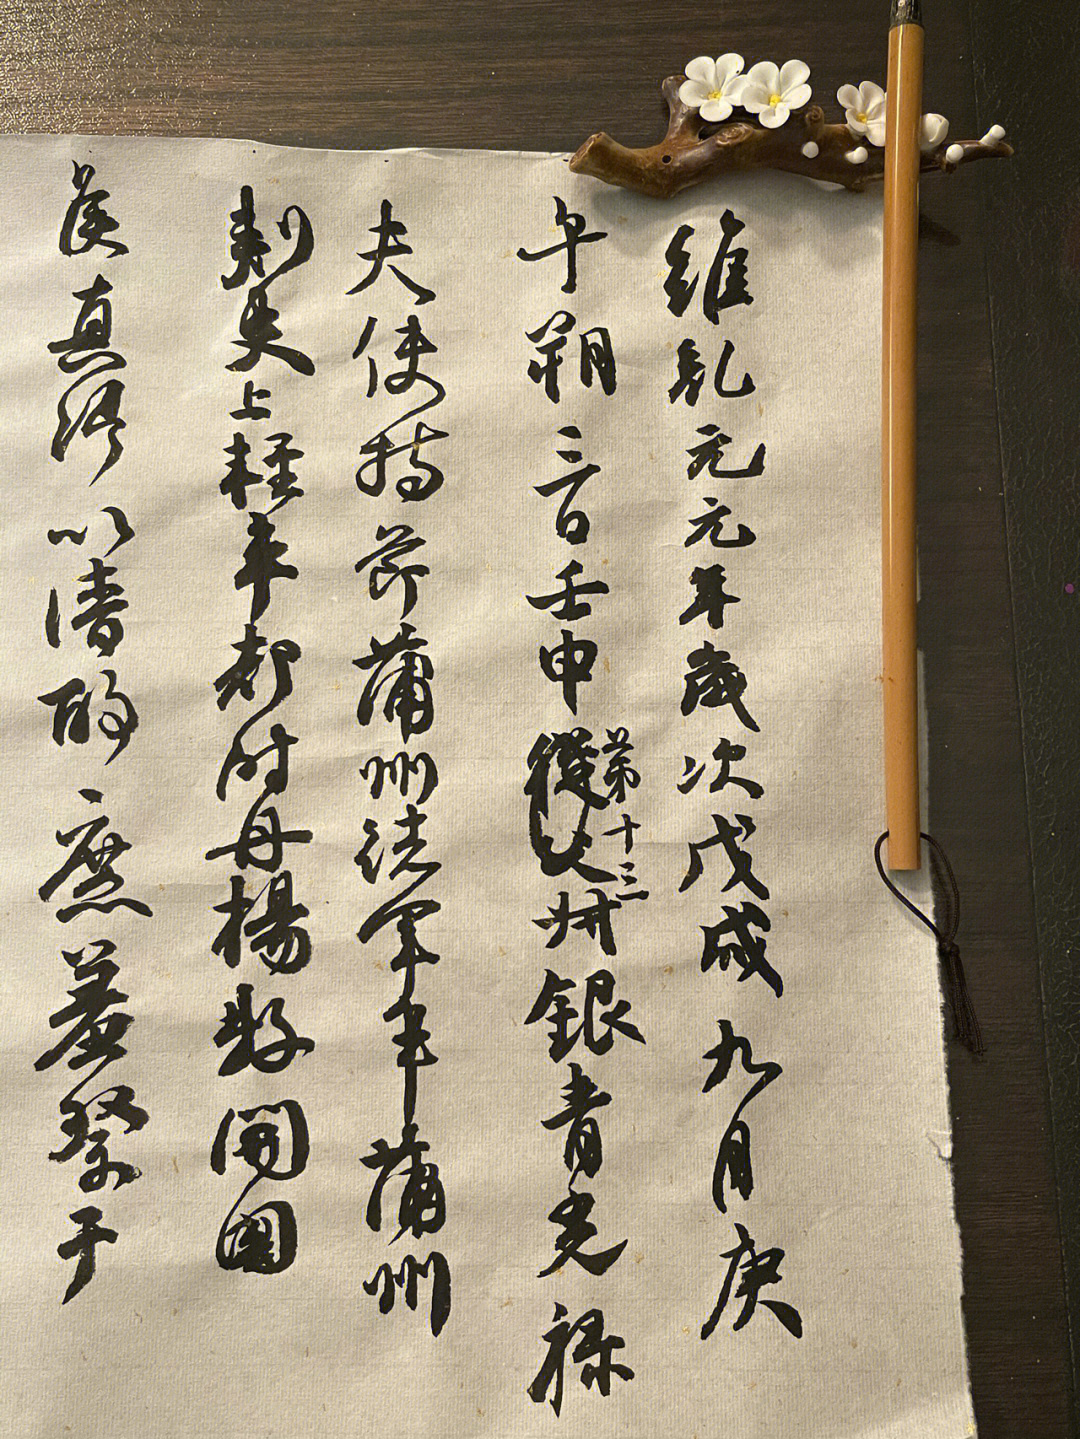 維乾元元年歲次戊戌九月庚
午朔三日壬申第十三從父叔銀青光祿
夫使持節蒲州諸軍事蒲州
刺史上輕車都尉丹楊縣開國
侯真卿以清酌庶羞祭于